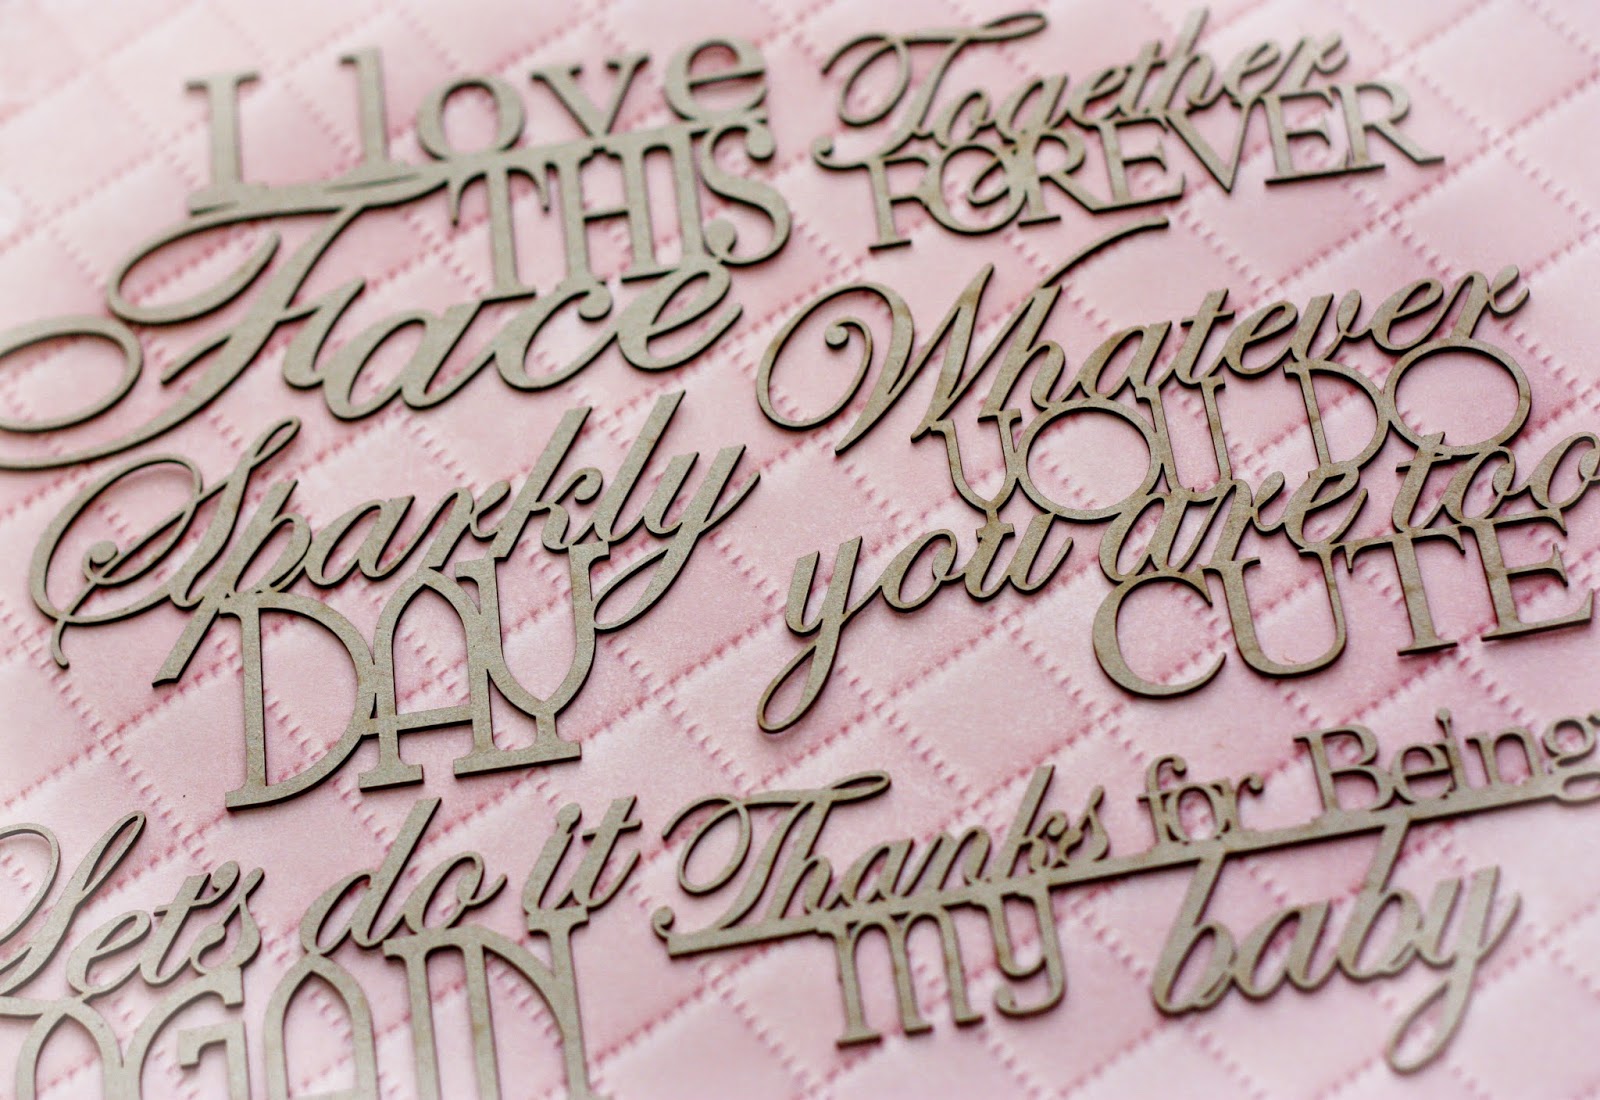 I love
THIS
Face
Together
FOREVER
Sparkly
DAY
Whatever
YOU DO
you are too
CUTE
Let's do it
AGAIN
Thanks for Being
my baby